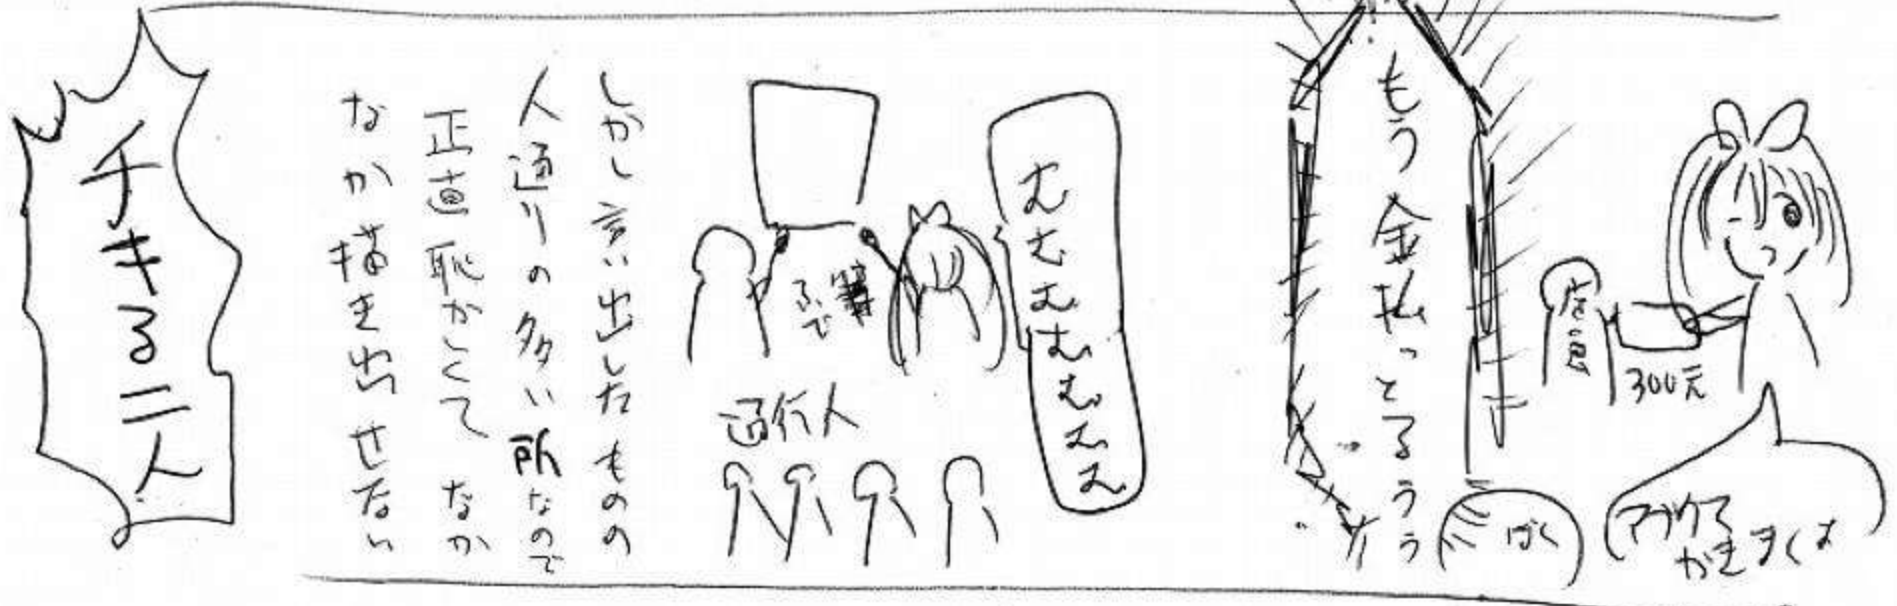 店員
300元
ぼく
もう金払っとるぅぅ
むむむむむむむ
筆
ふで
通行人
しかし言い出したものの
人通りの多い所なので
正直恥かしくて なか
なか描き出せない
チキる二人